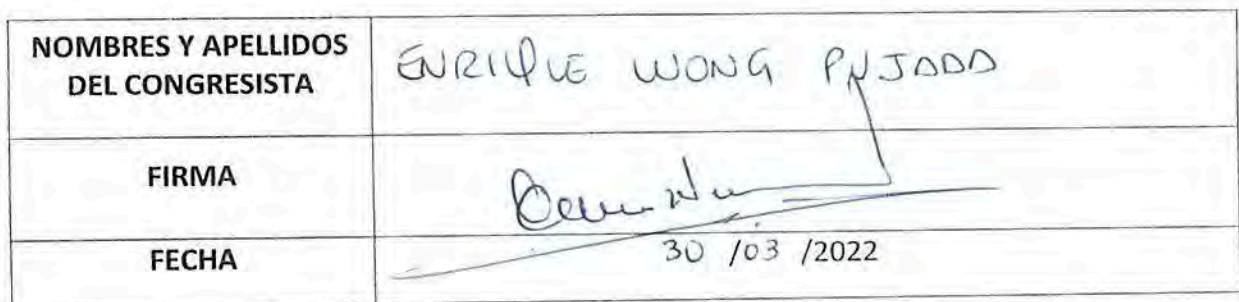 NOMBRES Y APELLIDOS
DEL CONGRESISTA
ENRIQUE WONG PUJADA
FIRMA
FECHA
30 /03 /2022